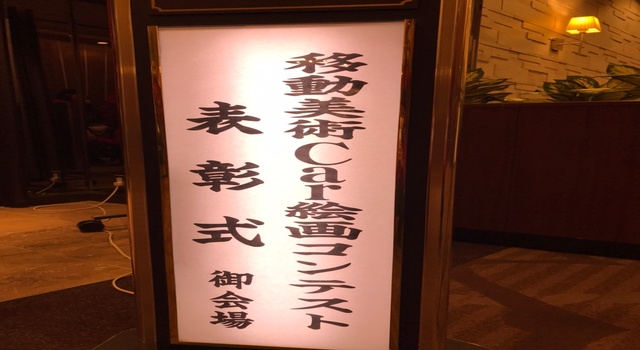 移動美術Car絵画コンテスト
表彰式 御会場